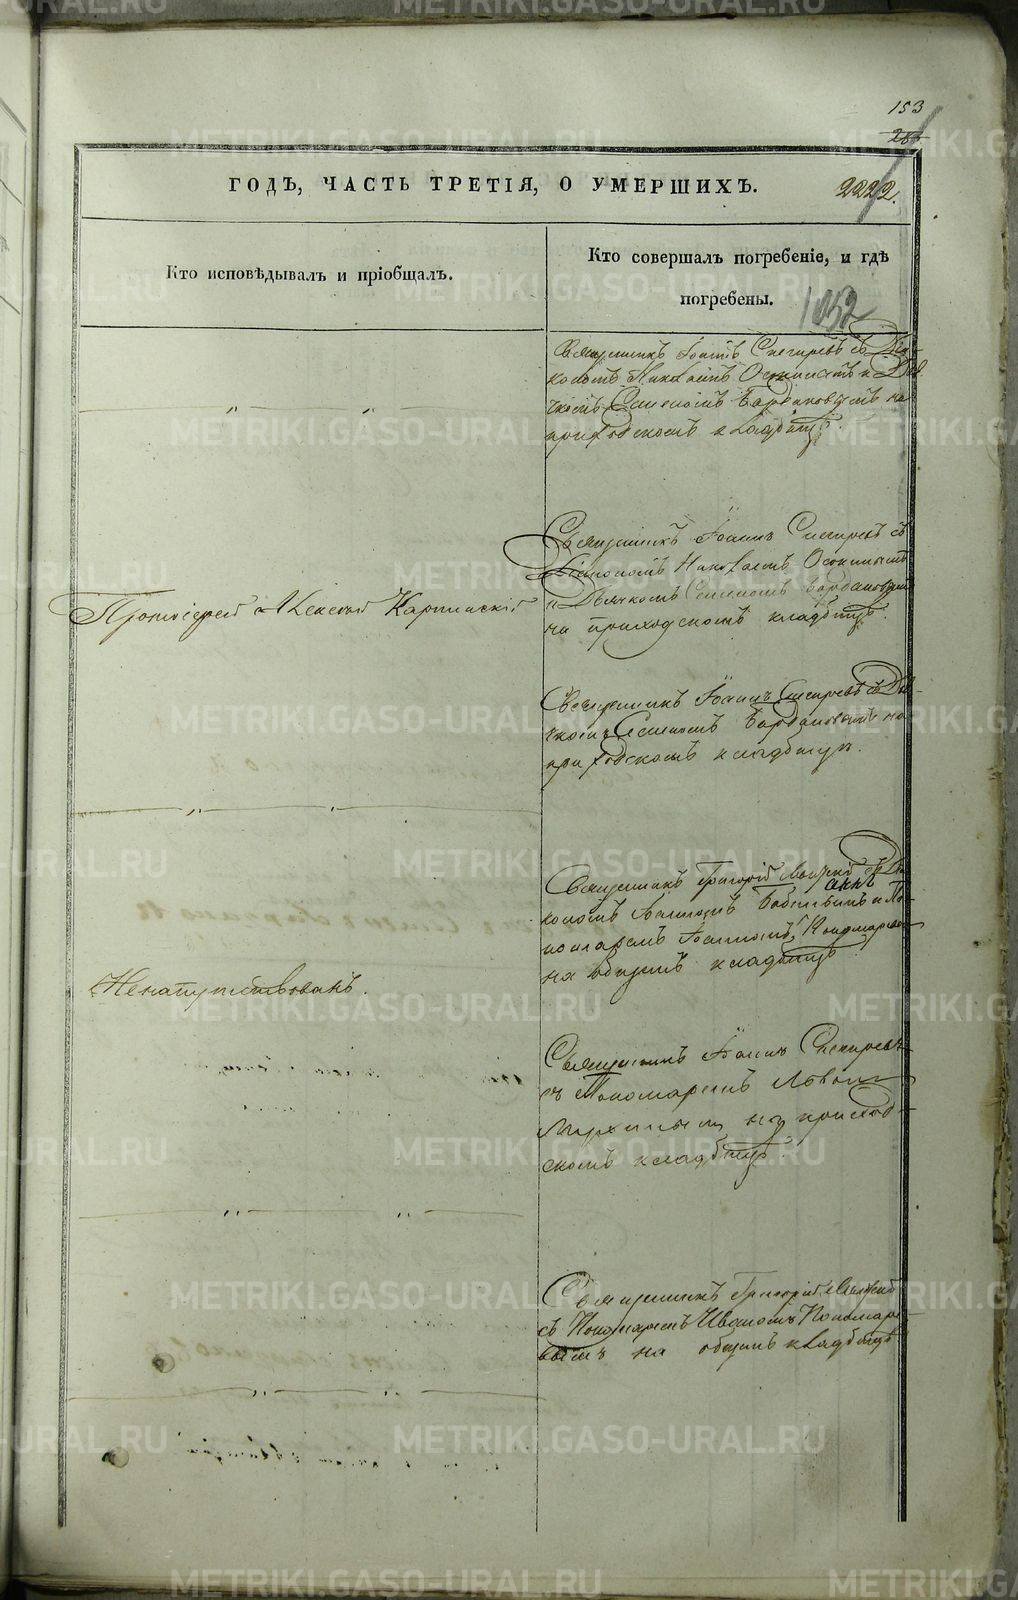 153
ГОДЪ, ЧАСТЬ ТРЕТІЯ, О УМЕРШИХЪ.
2222.
Кто исповѣдывалъ и пріобщалъ.
Кто совершалъ погребеніе, и гдѣ
погребены.
1052
Священникъ Іоаннъ Снегиревъ съ Діа-
кономъ Николаемъ Осокинымъ и Дья
чкомъ Семеномъ на
приходскомъ кладбищѣ.
Протоіерей Алексей Карпинскій
Священникъ Іоаннъ Снегиревъ съ
Діакономъ Николаемъ Осокинымъ
и Дьячкомъ Семеномъ
на приходскомъ кладбищѣ.
Священникъ Іоаннъ Снегиревъ съ Дья-
чкомъ Семеномъ на
приходскомъ кладбищѣ.
Священникъ Григорій съ Діа
кономъ Іоанномъ и По
номаремъ Іоанномъ
на общемъ кладбищѣ
Ненапутствованъ.
Священникъ Іоаннъ Снегиревъ
съ Пономаремъ Львомъ
на приход-
скомъ кладбищѣ.
Священникъ Григорій
съ Пономаремъ Иваномъ Пономаре
вымъ на общемъ кладбищѣ
METRIKI.GASO-URAL.RU